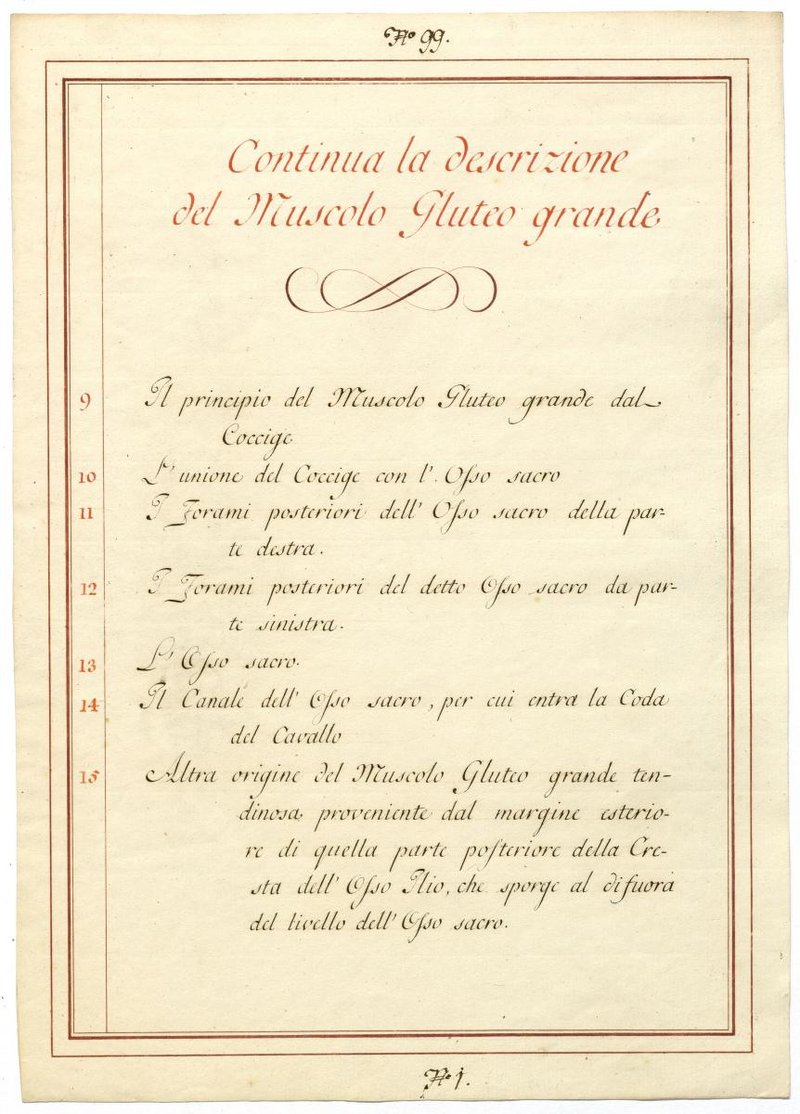 No 99.
Continua la descrizione
del Muscolo Gluteo grande
9 Il principio del Muscolo Gluteo grande dal
Coccige
10 L'unione del Coccige con l'Osso sacro
11 I Forami posteriori dell' Osso sacro della par-
te destra.
12 I Forami posteriori del detto Osso sacro da par-
te sinistra.
13 L'Osso sacro.
14 Il Canale dell' Osso sacro, per cui entra la Coda
del Cavallo
15 Altra origine del Muscolo Gluteo grande ten-
dinosa proveniente dal margine esterio-
re di quella parte posteriore della Cre-
sta dell' Osso Ilio, che sporge al difuora
del livello dell' Osso sacro.
No 1.